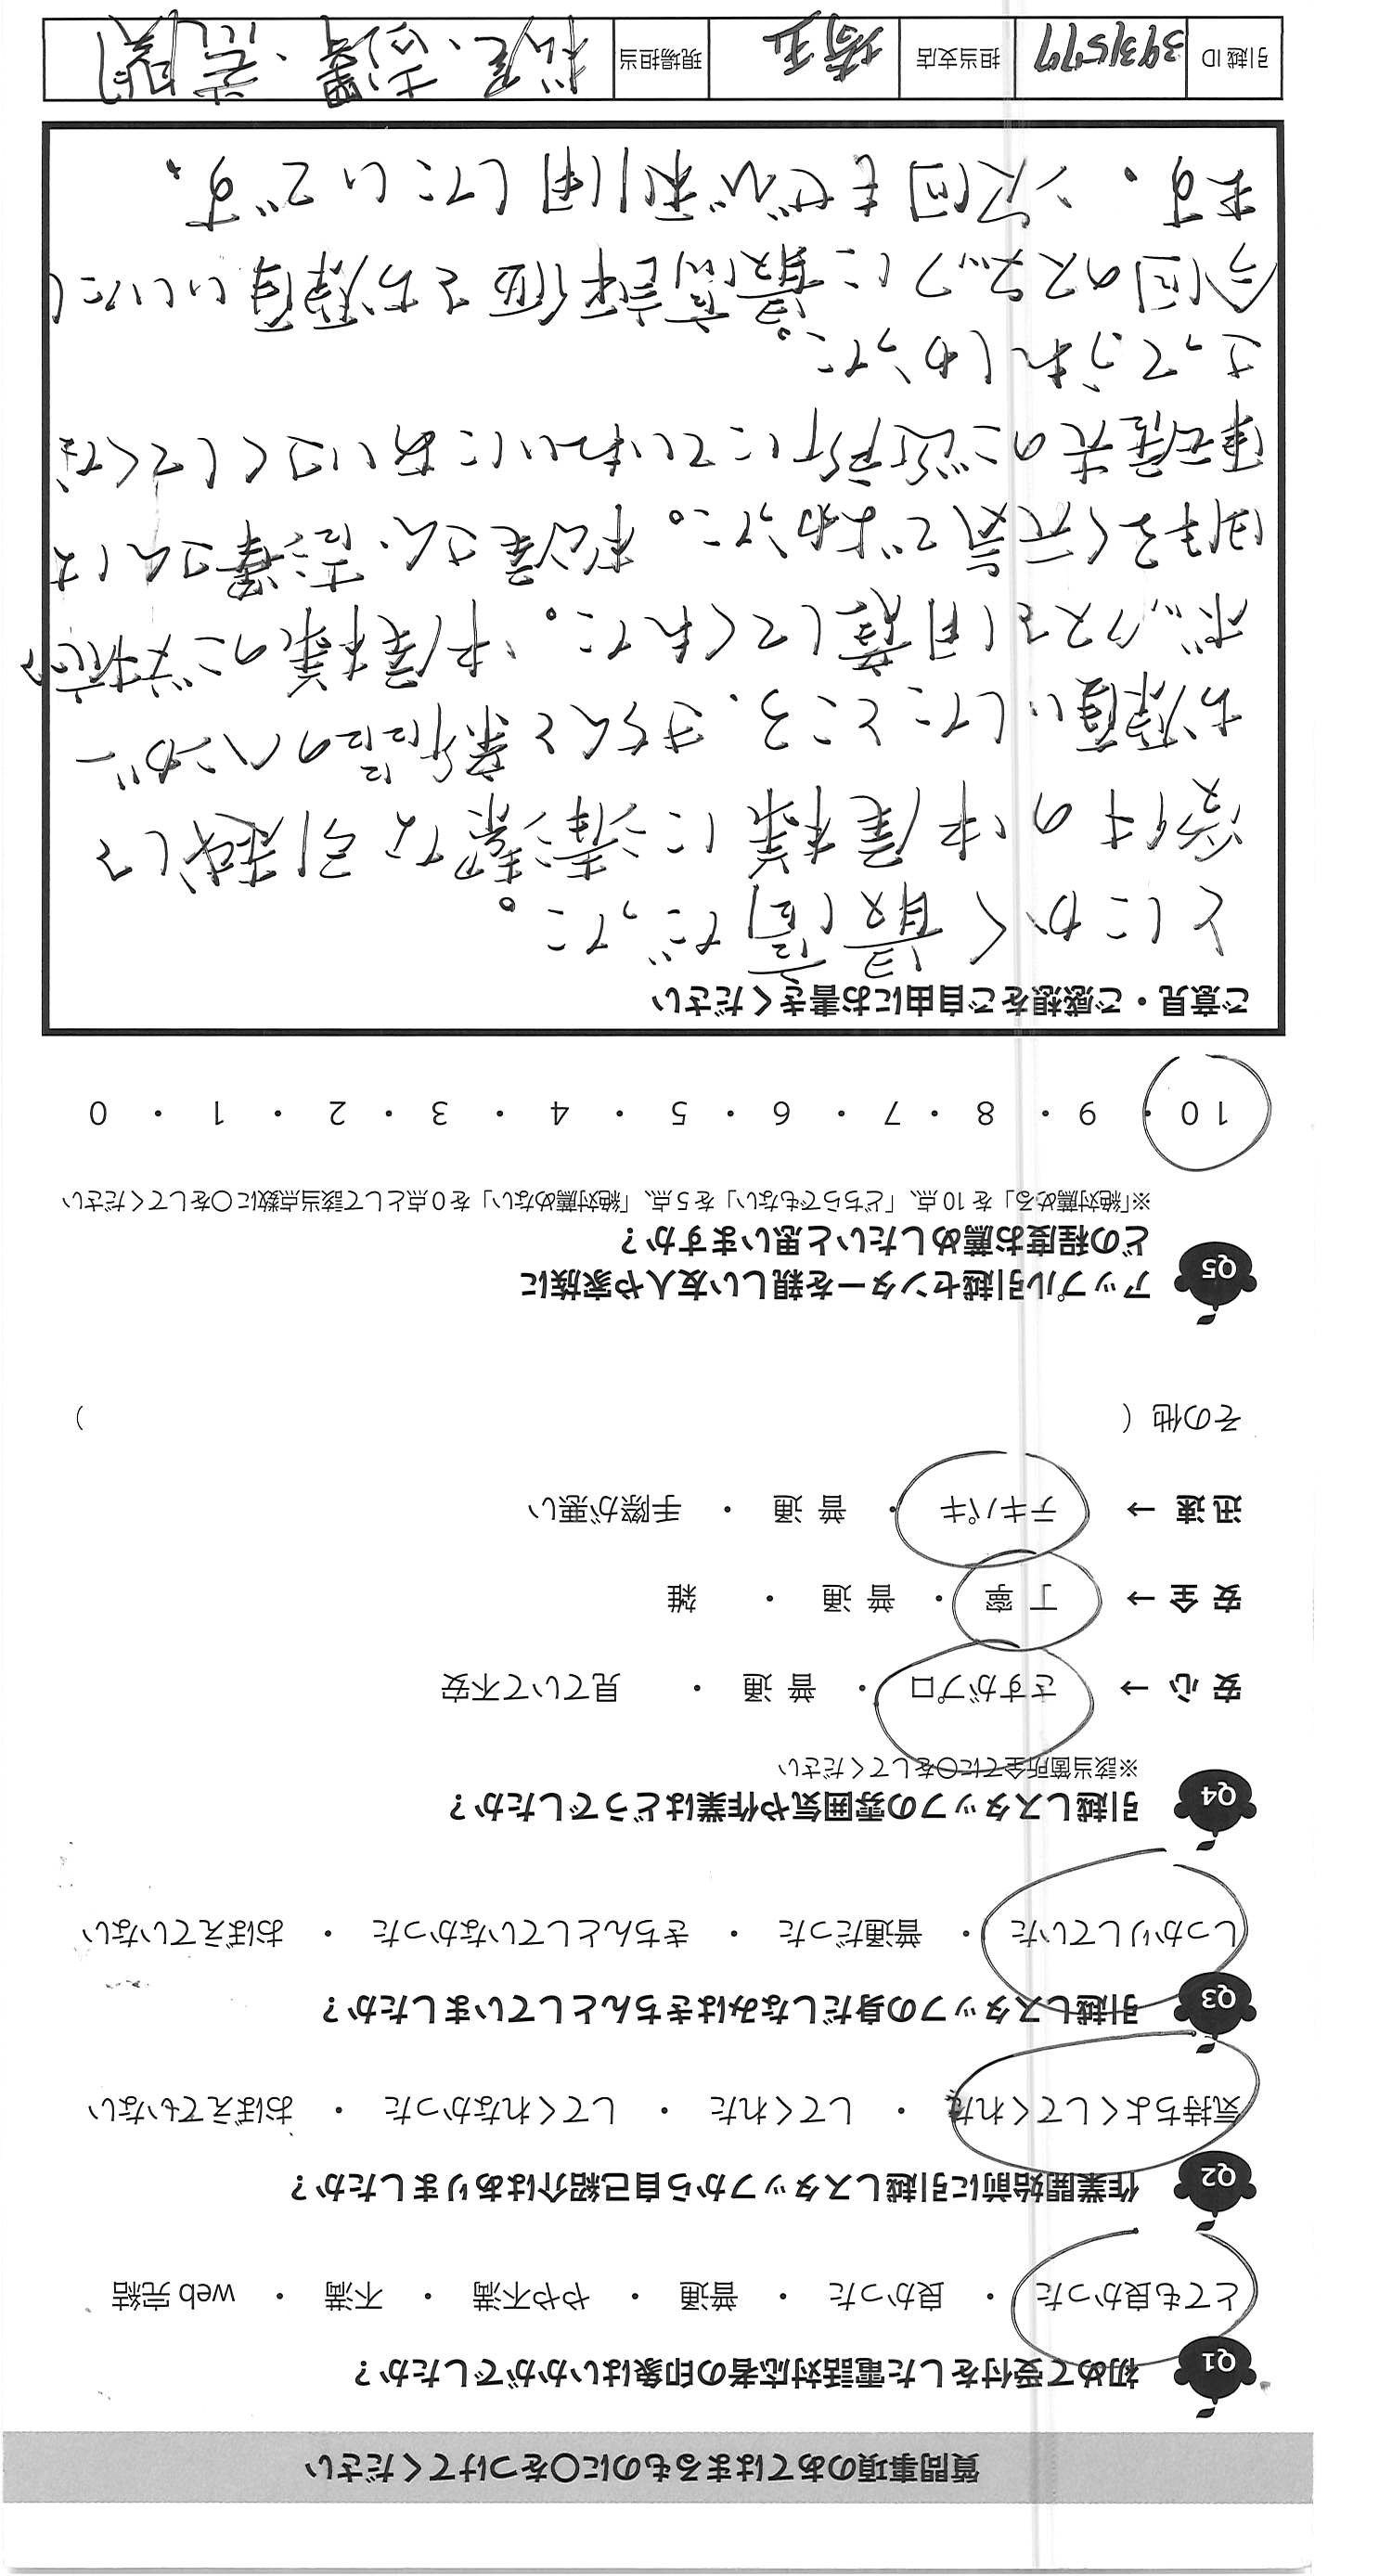 質問事項のあてはまるものに〇をつけてください
Q1 初めて受付をした電話対応者の印象はいかがでしたか？
とても良かった ・ 良かった ・ 普通 ・ やや不満 ・ 不満 ・ web 完結
Q2 作業開始前に引越しスタッフから自己紹介はありましたか？
気持ちよくしてくれた ・ してくれた ・ してくれなかった ・ おぼえてもいない
Q3 引越しスタッフの身だしなみはきちんとしていましたか？
しっかりしていた ・ 普通だった ・ きちんとしていなかった ・ おぼえていない
Q4 引越しスタッフの雰囲気や作業はどうでしたか？
※該当箇所全てに〇をしてください
安 心 → さすがプロ ・ 普 通 ・ 見ていて不安
安 全 → 丁 寧 ・ 普 通 ・ 雑
迅 速 → テキパキ ・ 普 通 ・ 手際が悪い
その他（ ）
Q5 アップル引越センターを親しい友人や家族に
どの程度お薦めしたいと思いますか？
※「絶対薦める」を 10 点、「どちらでもない」を 5 点、「絶対薦めない」を 0 点として該当点数に〇をしてください
10 ・ 9 ・ 8 ・ 7 ・ 6 ・ 5 ・ 4 ・ 3 ・ 2 ・ 1 ・ 0
ご意見・ご感想をご自由にお書きください
とにかく最高だった。
受付の小尾様に清潔な引越しを
お願いしたところ、きちんと新品のハンガー
ボックスを用意してくれた。小尾様のご対応も
明るく元気でよかった。松尾さん、吉澤さんは
転居先のご近所にていねいにあいさつしてくださ
さってうれしかった。
今回のスタッフに最高評価をお願いいたし
ます。次回もぜひ利用したいです。
引越 ID 3931577 担当支店 埼玉 現場担当 松尾、吉澤、